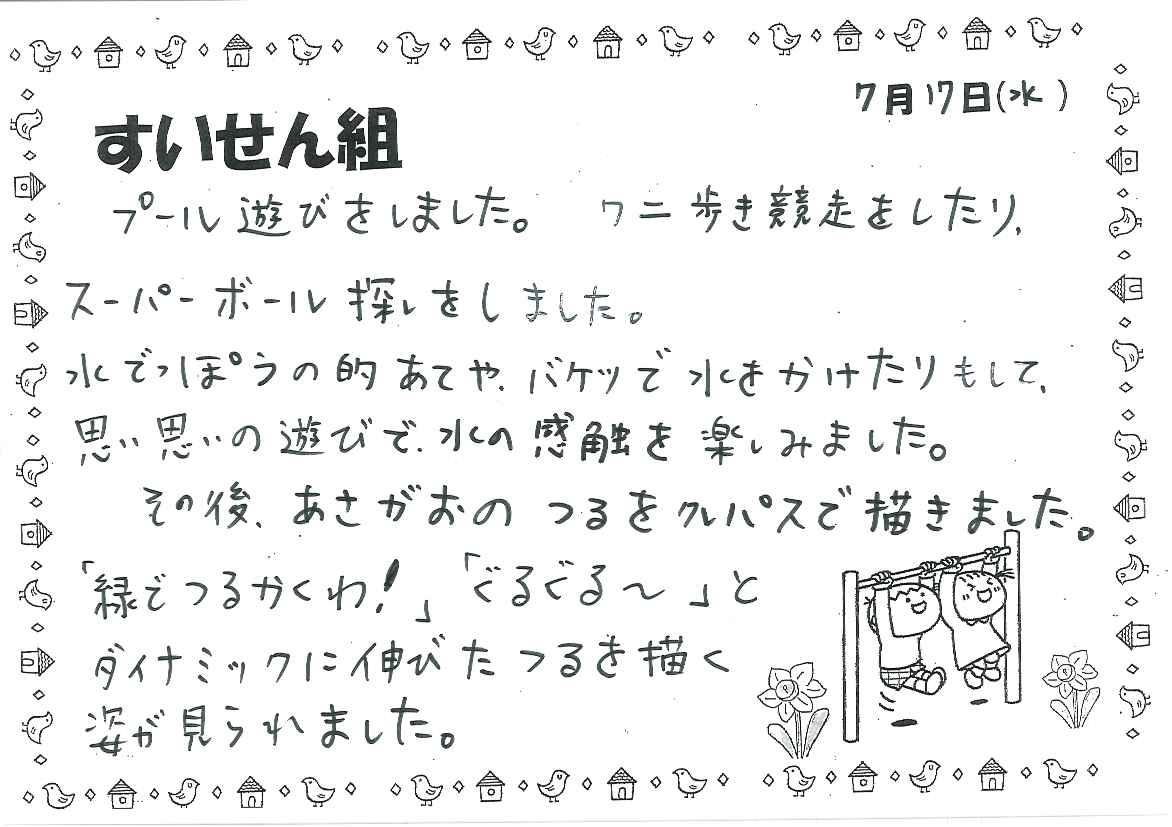 7月17日(水)
すいせん組
プール遊びをしました。 ワニ歩き競走をしたり、
スーパーボール探しをしました。
水でっぽうの的あてや、バケツで水をかけたりもして、
思い思いの遊びで、水の感触を楽しみました。
その後、あさがおのつるをクレパスで描きました。
「緑でつるかくわ！」「ぐるぐる〜」と
ダイナミックに伸びたつるを描く
姿が見られました。